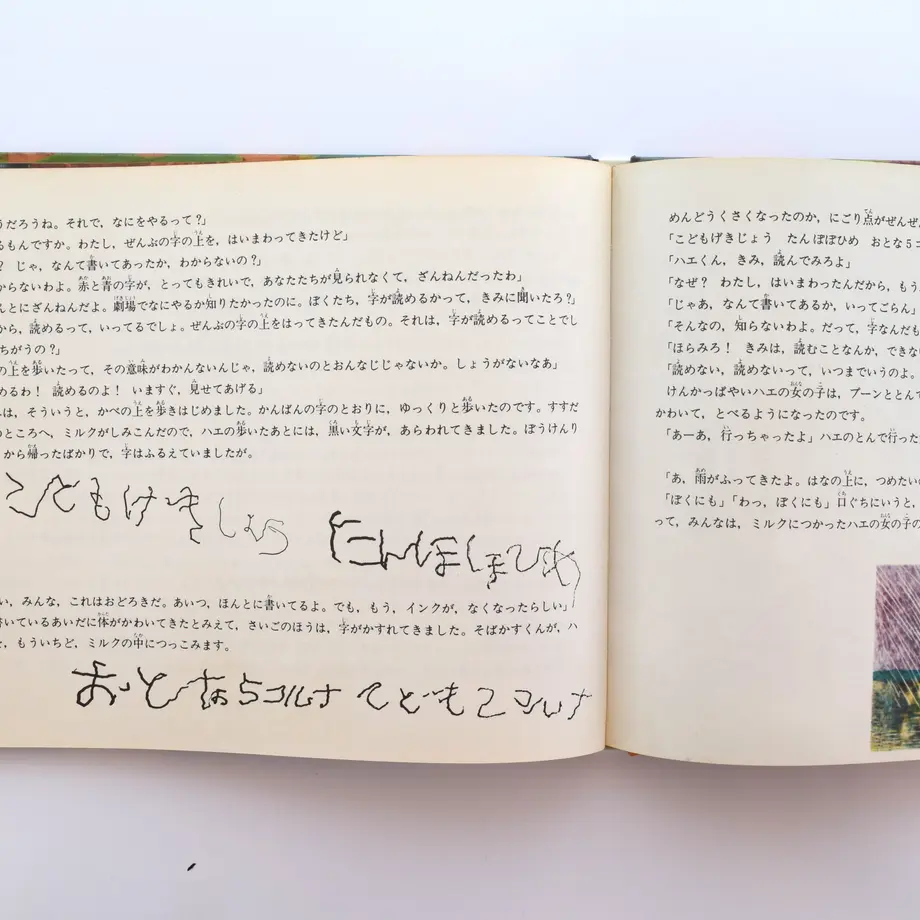 うだろうね。それで，なにをやるって？」
るもんですか。わたし，ぜんぶの字の上を，はいまわってきたけど」
？ じゃ，なんて書いてあったか，わからないの？」
からないわよ。赤と青の字が，とってもきれいで，あなたたちが見られなくて，ざんねんだったわ」
んとにざんねんだよ。劇場でなにやるか知りたかったのに。ぼくたち，字が読めるかって，きみに聞いたろ？」
から，読めるって，いってるでしょ。ぜんぶの字の上をはってきたんだもの。それは，字が読めるってことでし
ちがうの？」
の上を歩いたって，その意味がわかんないんじゃ，読めないのとおんなじじゃないか。しょうがないなあ」
めるわ！ 読めるのよ！ いますぐ，見せてあげる」
は，そういうと，かべの上を歩きはじめました。かんばんの字のとおりに，ゆっくりと歩いたのです。すすだ
のところへ，ミルクがしみこんだので，ハエの歩いたあとには，黒い文字が，あらわれてきました。ぼうけんり
から帰ったばかりで，字はふるえていましたが。
こどもげきしょう
たんぽぽひめ
い，みんな，これはおどろきだ。あいつ，ほんとに書いてるよ。でも，もう，インクが，なくなったらしい」
書いているあいだに体がかわいてきたとみえて，さいごのほうは，字がかすれてきました。そばかすくんが，ハ
，もういちど，ミルクの中につっこみます。
おとな5コルナ こども2コルナ
めんどうくさくなったのか，にごり点がぜんぜ
「こどもげきじょう たんぽぽひめ おとな5コ
「ハエくん，きみ，読んでみろよ」
「なぜ？ わたし，はいまわったんだから，もう
「じゃあ，なんて書いてあるか，いってごらん」
「そんなの，知らないわよ。だって，字なんだも
「ほらみろ！ きみは，読むことなんか，できな
「読めない，読めないって，いつまでいうのよ。
けんかっぱやいハエの女の子は，ブーンととんで
かわいて，とべるようになったのです。
「あーあ，行っちゃったよ」ハエのとんで行った
「あ，雨がふってきたよ。はなの上に，つめたいの
「ぼくにも」「わっ，ぼくにも」口ぐちにいうと，
って，みんなは，ミルクにつかったハエの女の子の